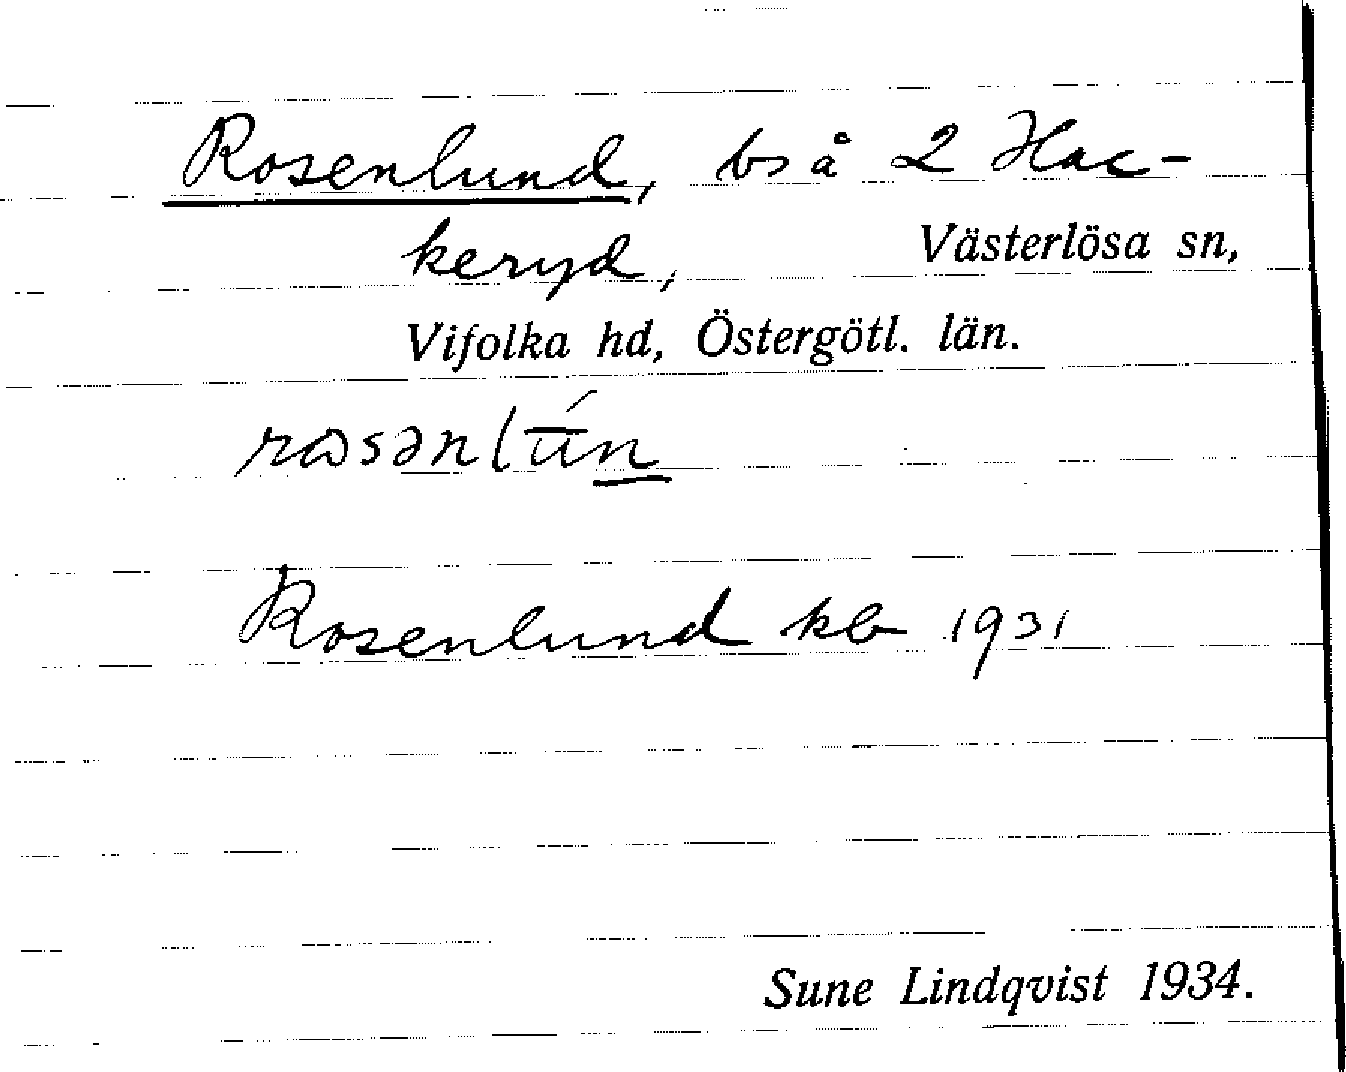 Rosenlund, bs å 2 Hac-
keryd, Västerlösa sn,
Vifolka hd, Östergötl. län.
Rosenlund kb 1931
Sune Lindqvist 1934.